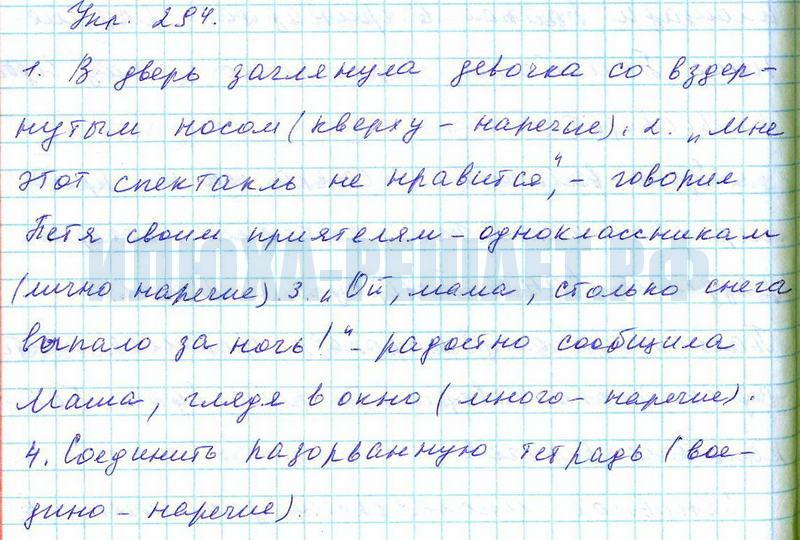 Упр. 294.
1. В дверь заглянула девочка со вздер-
нутым носом (кверху - наречие). 2. „Мне
этот спектакль не нравится", - говорил
Петя своим приятелям - одноклассникам
(лично наречие) 3. „Ой, мама, столько снега
выпало за ночь!" - радостно сообщила
Маша, глядя в окно (много - наречие).
4. Соединить разорванную тетрадь (вое-
дино - наречие).
ИЛЮХА-РЕШАЕТ.РФ